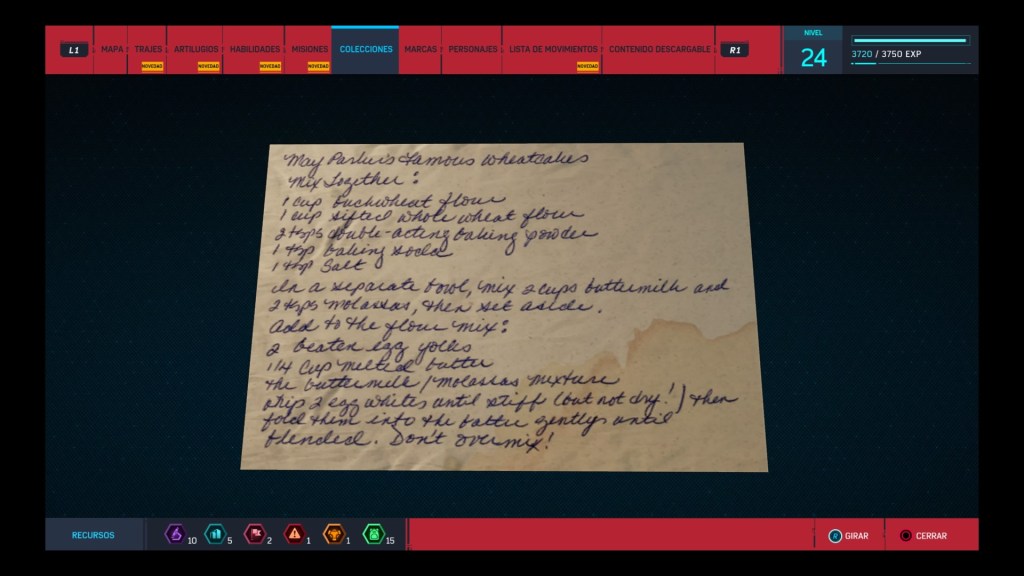 L1 MAPA TRAJES ARTILUGIOS HABILIDADES MISIONES COLECCIONES MARCAS PERSONAJES LISTA DE MOVIMIENTOS CONTENIDO DESCARGABLE R1
NOVEDAD NOVEDAD NOVEDAD NOVEDAD NOVEDAD
NIVEL
24
3720 / 3750 EXP
May Parker's Famous Wheatcakes
Mix Together:
1 cup buckwheat flour
1 cup sifted whole wheat flour
2 tsps double-acting baking powder
1 tsp baking soda
1 tsp Salt
In a separate bowl, mix 2 cups buttermilk and
2 tsps molassas, then set aside.
Add to the flour mix:
2 beaten egg yolks
1/4 cup melted butter
the buttermilk / molassas mixture
Whip 2 egg whites until stiff (but not dry!) then
fold them into the batter gently until
blended. Don't overmix!
RECURSOS 10 5 2 1 1 15 R GIRAR CERRAR